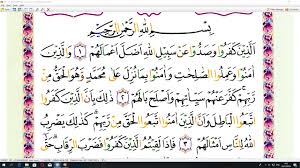 بِسْمِ اللَّهِ الرَّحْمَٰنِ الرَّحِيمِ
الَّذِينَ كَفَرُوا وَصَدُّوا عَنْ سَبِيلِ اللَّهِ أَضَلَّ أَعْمَالَهُمْ ١ وَالَّذِينَ
آمَنُوا وَعَمِلُوا الصَّالِحَاتِ وَآمَنُوا بِمَا نُزِّلَ عَلَىٰ مُحَمَّدٍ وَهُوَ الْحَقُّ مِنْ
رَبِّهِمْ كَفَّرَ عَنْهُمْ سَيِّئَاتِهِمْ وَأَصْلَحَ بَالَهُمْ ٢ ذَٰلِكَ بِأَنَّ الَّذِينَ كَفَرُوا
اتَّبَعُوا الْبَاطِلَ وَأَنَّ الَّذِينَ آمَنُوا اتَّبَعُوا الْحَقَّ مِنْ رَبِّهِمْ كَذَٰلِكَ يَضْرِبُ
اللَّهُ لِلنَّاسِ أَمْثَالَهُمْ ٣ فَإِذَا لَقِيتُمُ الَّذِينَ كَفَرُوا فَضَرْبَ الرِّقَابِ حَتَّىٰ